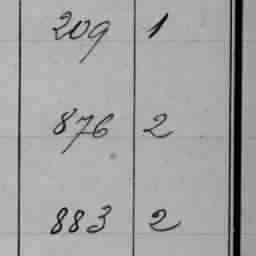 209 1
876 2
883 2